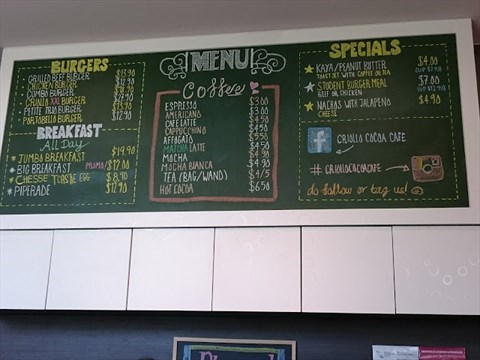 BURGERS
GRILLED BEEF BURGER $13.90
CHICKEN BURGER $12.90
COMBO BURGER
CRIOLLO XXL BURGER
PETITE TRIO BURGER
PORTOBELLO BURGER $12.90
BREAKFAST
All Day
JUMBO BREAKFAST $19.90
BIG BREAKFAST $17.00
CHEESE TOASTIE EGG $8.90
PIPERADE $12.90
MENU
Coffee
ESPRESSO $3.00
AMERICANO $3.00
CAFE LATTE
CAPPUCCINO $4.50
AFFOGATO
MATCHA LATTE
MOCHA
MOCHA BIANCA $4.90
TEA (BAG/WAND) $4/5
HOT COCOA $6.50
SPECIALS
KAYA/PEANUT BUTTER $4.00
TOAST SET WITH COFFEE OR TEA
STUDENT BURGER MEAL $7.00
BEEF OR CHICKEN
NACHOS WITH JALAPENO $4.90
CHEESE
f CRIOLLO COCOA CAFE
# CRIOLLOCOCOACAFE
do follow or tag us!